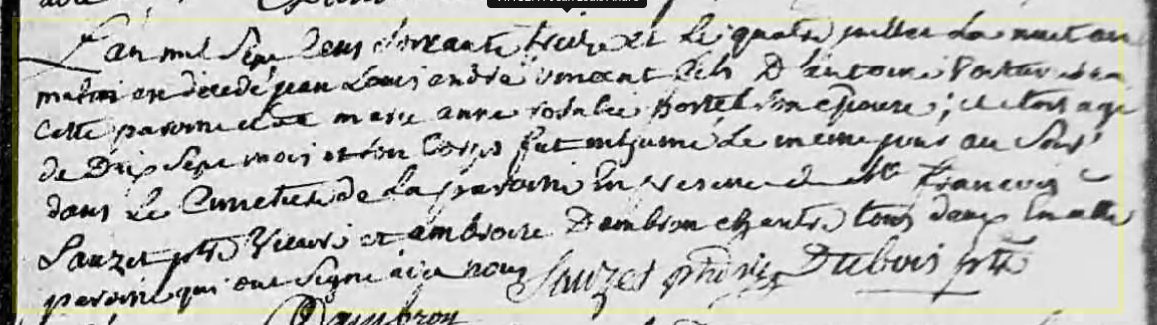 L'an mil sept cens soixante treize et le quatre juillet la nuit au
matin est décédé jean Louis andré vincent fils D'antoine
cette paroisse et de marie anne rosalie Bortel son épouse; étant agé
de Dix sept mois et son Corps fut inhumé le meme jour au soir
dans le Cimetiere de la paroisse En presence de Mre francois
Sauzet ptre Vicaire et ambroise Dambron chantre tous deux En cette
paroisse qui ont signé avec nous Sauzet ptre vic Dubois ptre
Dambron